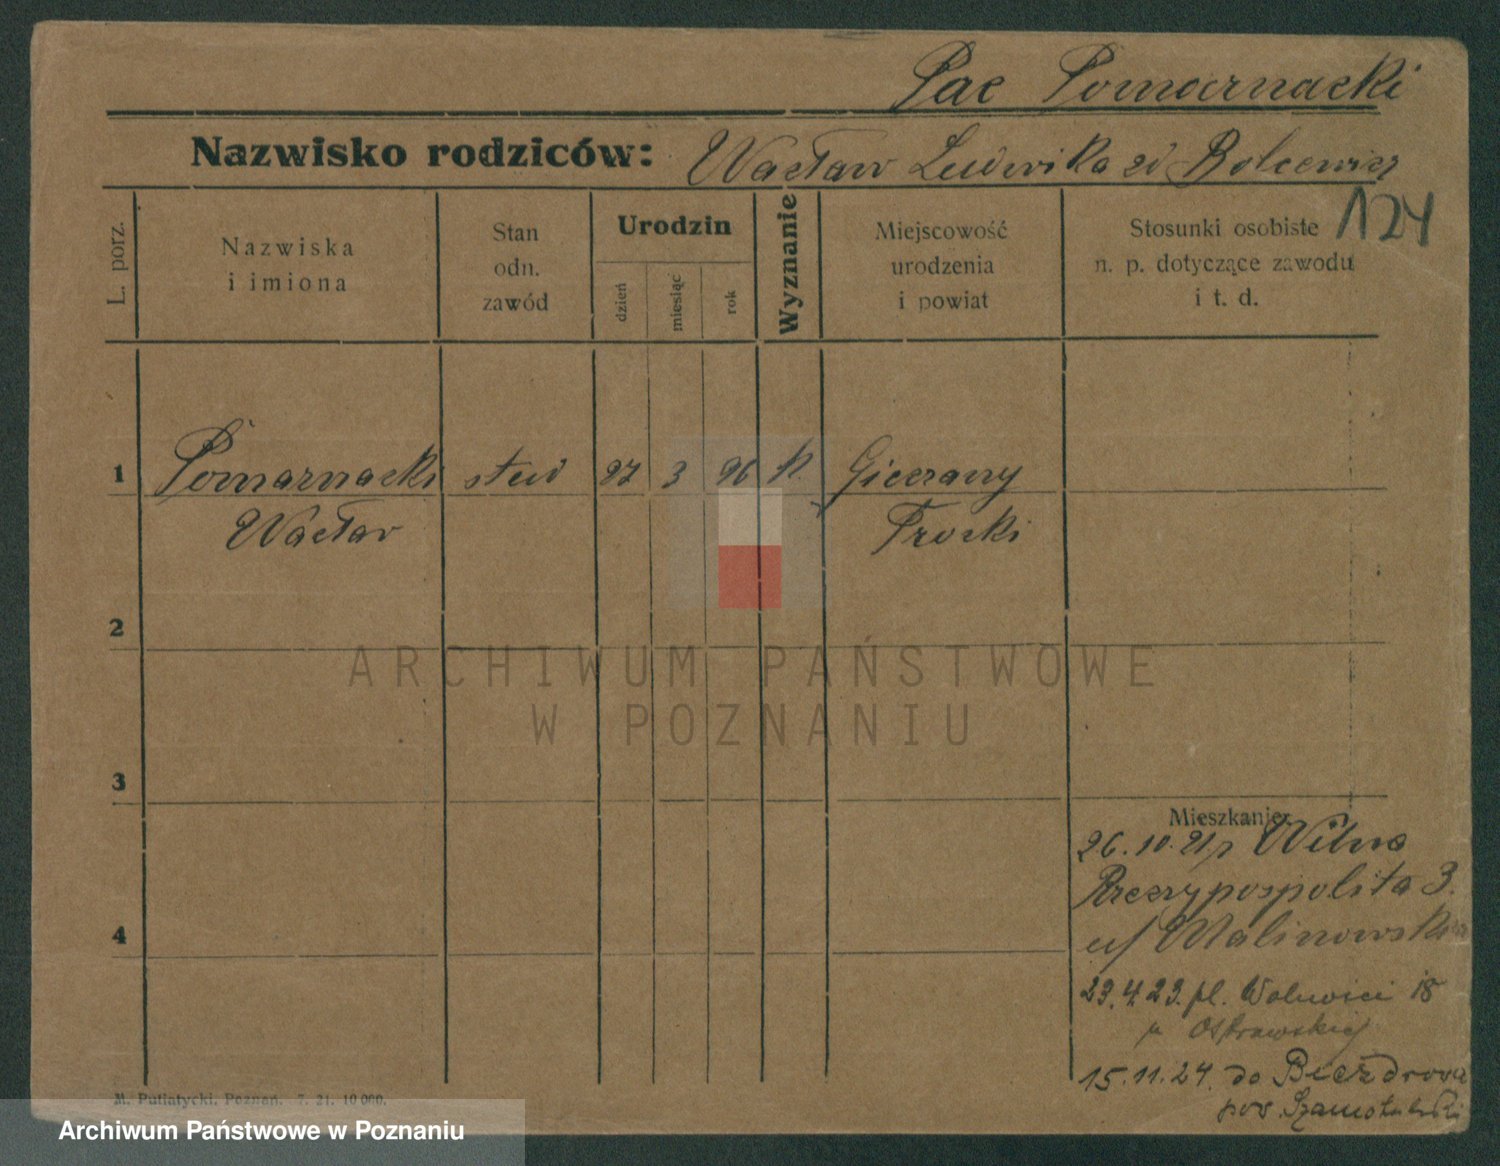 Pac Pomarnacki
Nazwisko rodziców: Wacław Ludwika zd Bolcewicz
124
L. porz.
Nazwiska i imiona
Stan odn. zawód
Urodzin
dzień
miesiąc
rok
Wyznanie
Miejscowość urodzenia i powiat
Stosunki osobiste n. p. dotyczące zawodu i t. d.
1 Pomarnacki stud 27 3 96 k. Giecrany
Wacław Trocki
2
3
4
Mieszkanie
26.10.21 p Wilna
Rzeczypospolita 3.
u/ Malinowski
23.4.23. pl. Wolności 18
u Ostrowskiej
15.11.24. do Biezdrowa
pow. Szamotulski
M. Putiatycki, Poznań. 7. 21. 10 000.
ARCHIWUM PAŃSTWOWE
W POZNANIU
Archiwum Państwowe w Poznaniu